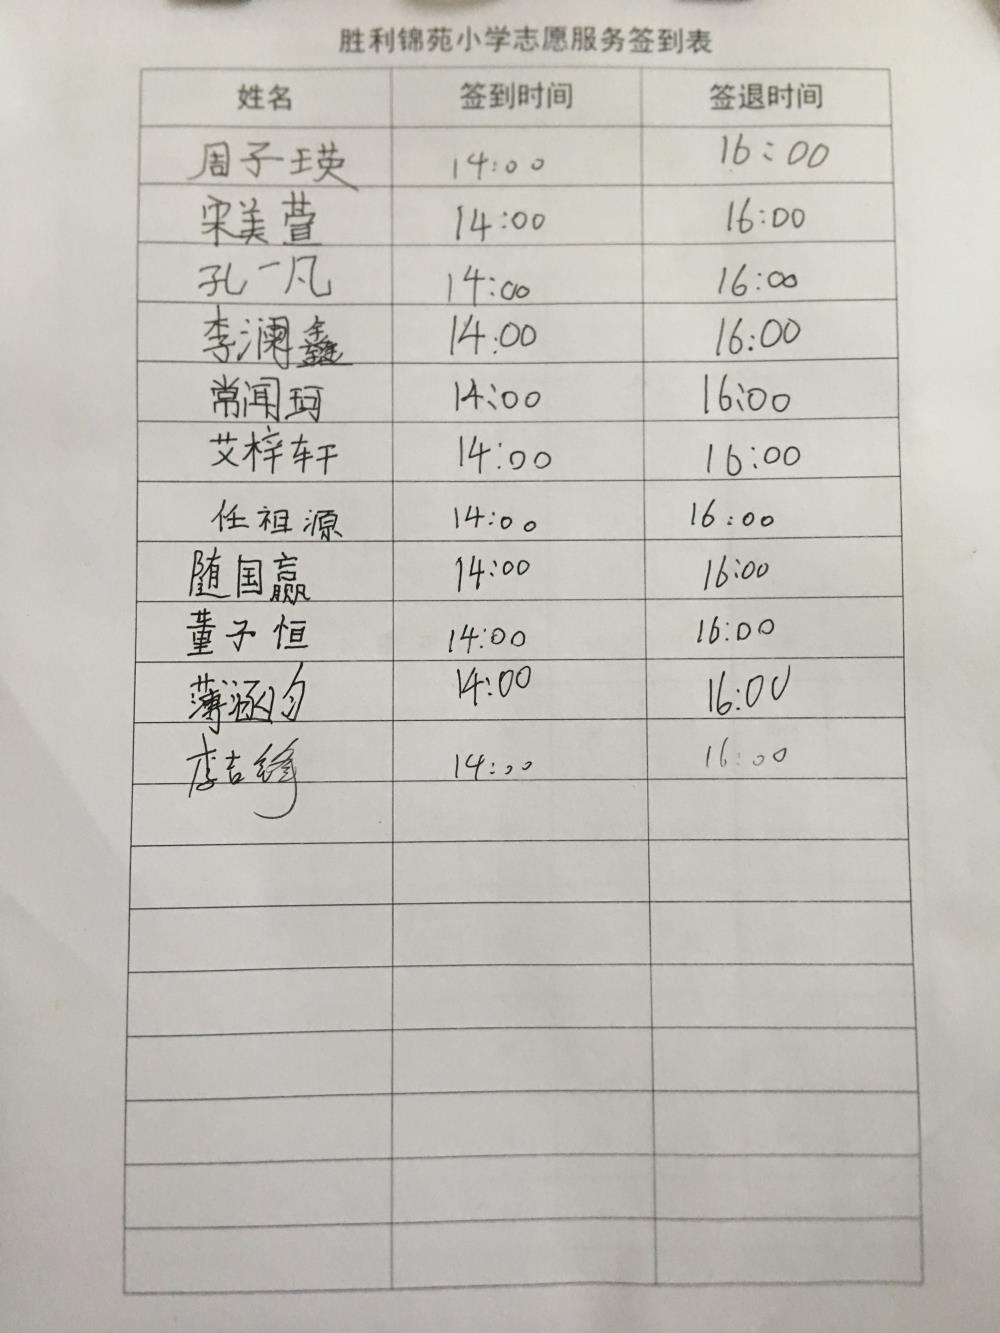 胜利锦苑小学志愿服务签到表
姓名 签到时间 签退时间
周子瑛 14:00 16:00
宋美萱 14:00 16:00
孔一凡 14:00 16:00
李澜鑫 14:00 16:00
常闻珂 14:00 16:00
艾梓轩 14:00 16:00
任祖源 14:00 16:00
随国赢 14:00 16:00
董子恒 14:00 16:00
薄涵匀 14:00 16:00
李吉锋 14:00 16:00